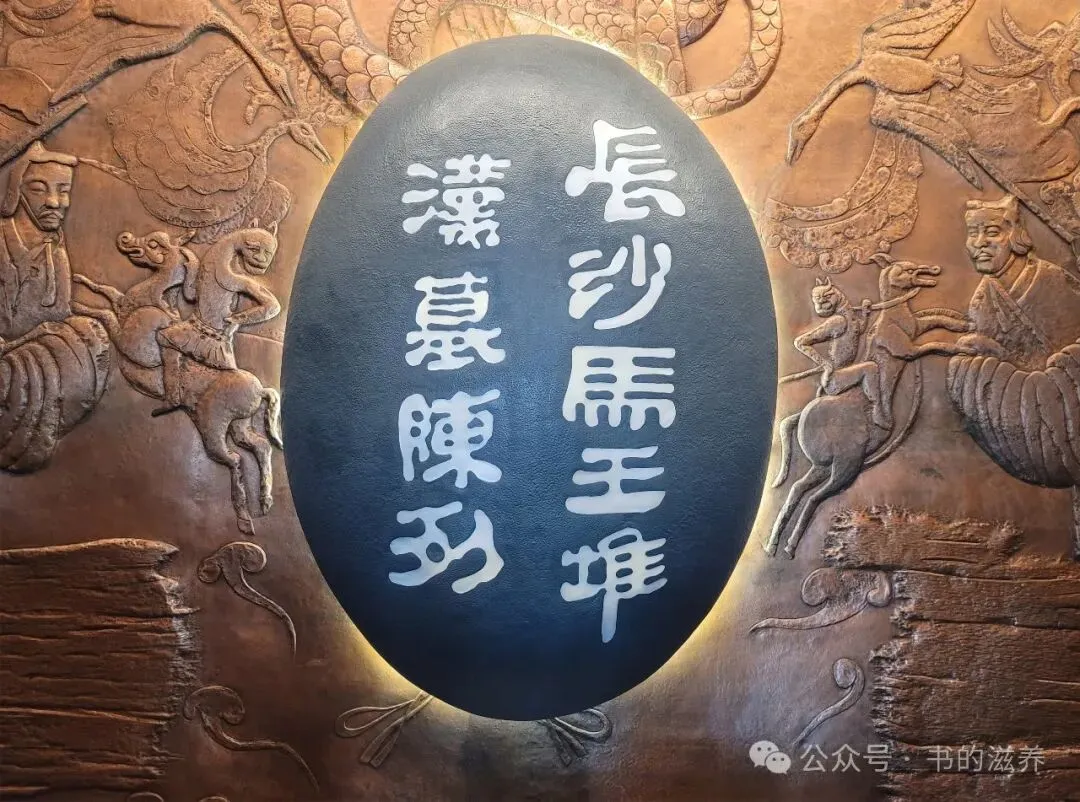 長沙馬王堆
漢墓陳列
公众号 · 书的滋养